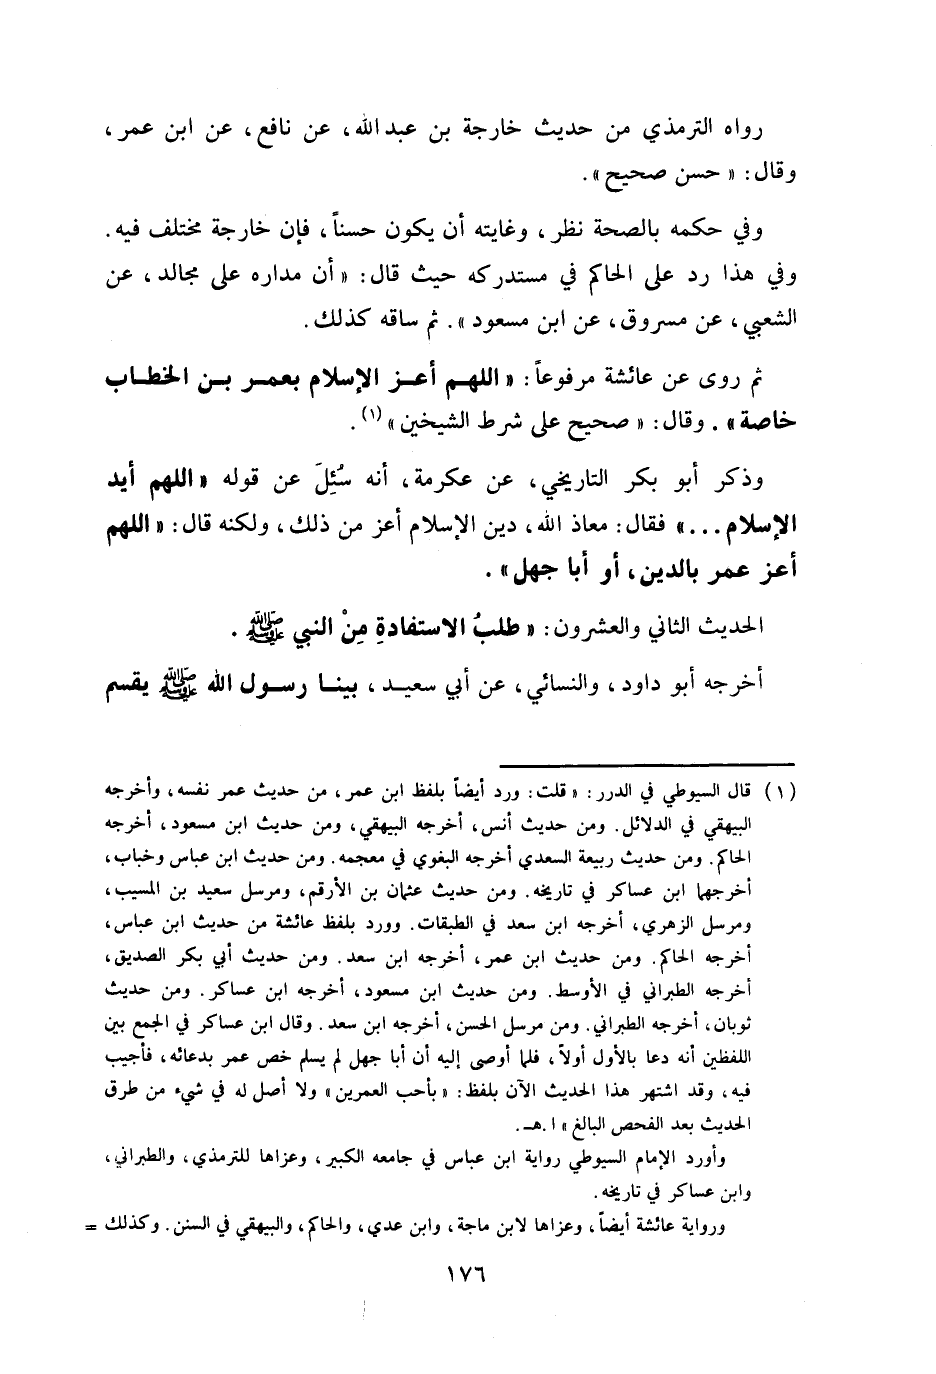 رواه الترمذي من حديث خارجة بن عبد الله، عن نافع، عن ابن عمر،
وقال: « حسن صحيح ».
وفي حكمه بالصحة نظر، وغايته أن يكون حسناً، فإن خارجة مختلف فيه.
وفي هذا رد على الحاكم في مستدركه حيث قال: « أن مداره على مجالد، عن
الشعبي، عن مسروق، عن ابن مسعود ». ثم ساقه كذلك.
ثم روى عن عائشة مرفوعاً: « اللهم أعز الإسلام بعمر بن الخطاب
خاصة ». وقال: « صحيح على شرط الشيخين »(١).
وذكر أبو بكر التاريخي، عن عكرمة، أنه سُئِلَ عن قوله « اللهم أيد
الإسلام... » فقال: معاذ الله، دين الإسلام أعز من ذلك، ولكنه قال: « اللهم
أعز عمر بالدين، أو أبا جهل ».
الحديث الثاني والعشرون: « طلبُ الاستفادةِ مِنْ النبي ﷺ.
أخرجه أبو داود، والنسائي، عن أبي سعيد، بينا رسول الله ﷺ يقسم
(١) قال السيوطي في الدرر: « قلت: ورد أيضاً بلفظ ابن عمر، من حديث عمر نفسه، وأخرجه
البيهقي في الدلائل. ومن حديث أنس، أخرجه البيهقي، ومن حديث ابن مسعود، أخرجه
الحاكم. ومن حديث ربيعة السعدي أخرجه البغوي في معجمه. ومن حديث ابن عباس وخباب،
أخرجها ابن عساكر في تاريخه. ومن حديث عثمان بن الأرقم، ومرسل سعيد بن المسيب،
ومرسل الزهري، أخرجه ابن سعد في الطبقات. وورد بلفظ عائشة من حديث ابن عباس،
أخرجه الحاكم. ومن حديث ابن عمر، أخرجه ابن سعد. ومن حديث أبي بكر الصديق،
أخرجه الطبراني في الأوسط. ومن حديث ابن مسعود، أخرجه ابن عساكر. ومن حديث
ثوبان، أخرجه الطبراني. ومن مرسل الحسن، أخرجه ابن سعد. وقال ابن عساكر في الجمع بين
اللفظين أنه دعا بالأول أولاً، فلما أوصى إليه أن أبا جهل لم يسلم خص عمر بدعائه، فأجيب
فيه، وقد اشتهر هذا الحديث الآن بلفظ: « بأحب العمرين » ولا أصل له في شيء من طرق
الحديث بعد الفحص البالغ » ا.هـ.
وأورد الإمام السيوطي رواية ابن عباس في جامعه الكبير، وعزاها للترمذي، والطبراني،
وابن عساكر في تاريخه.
ورواية عائشة أيضاً، وعزاها لابن ماجة، وابن عدي، والحاكم، والبيهقي في السنن. وكذلك =
١٧٦